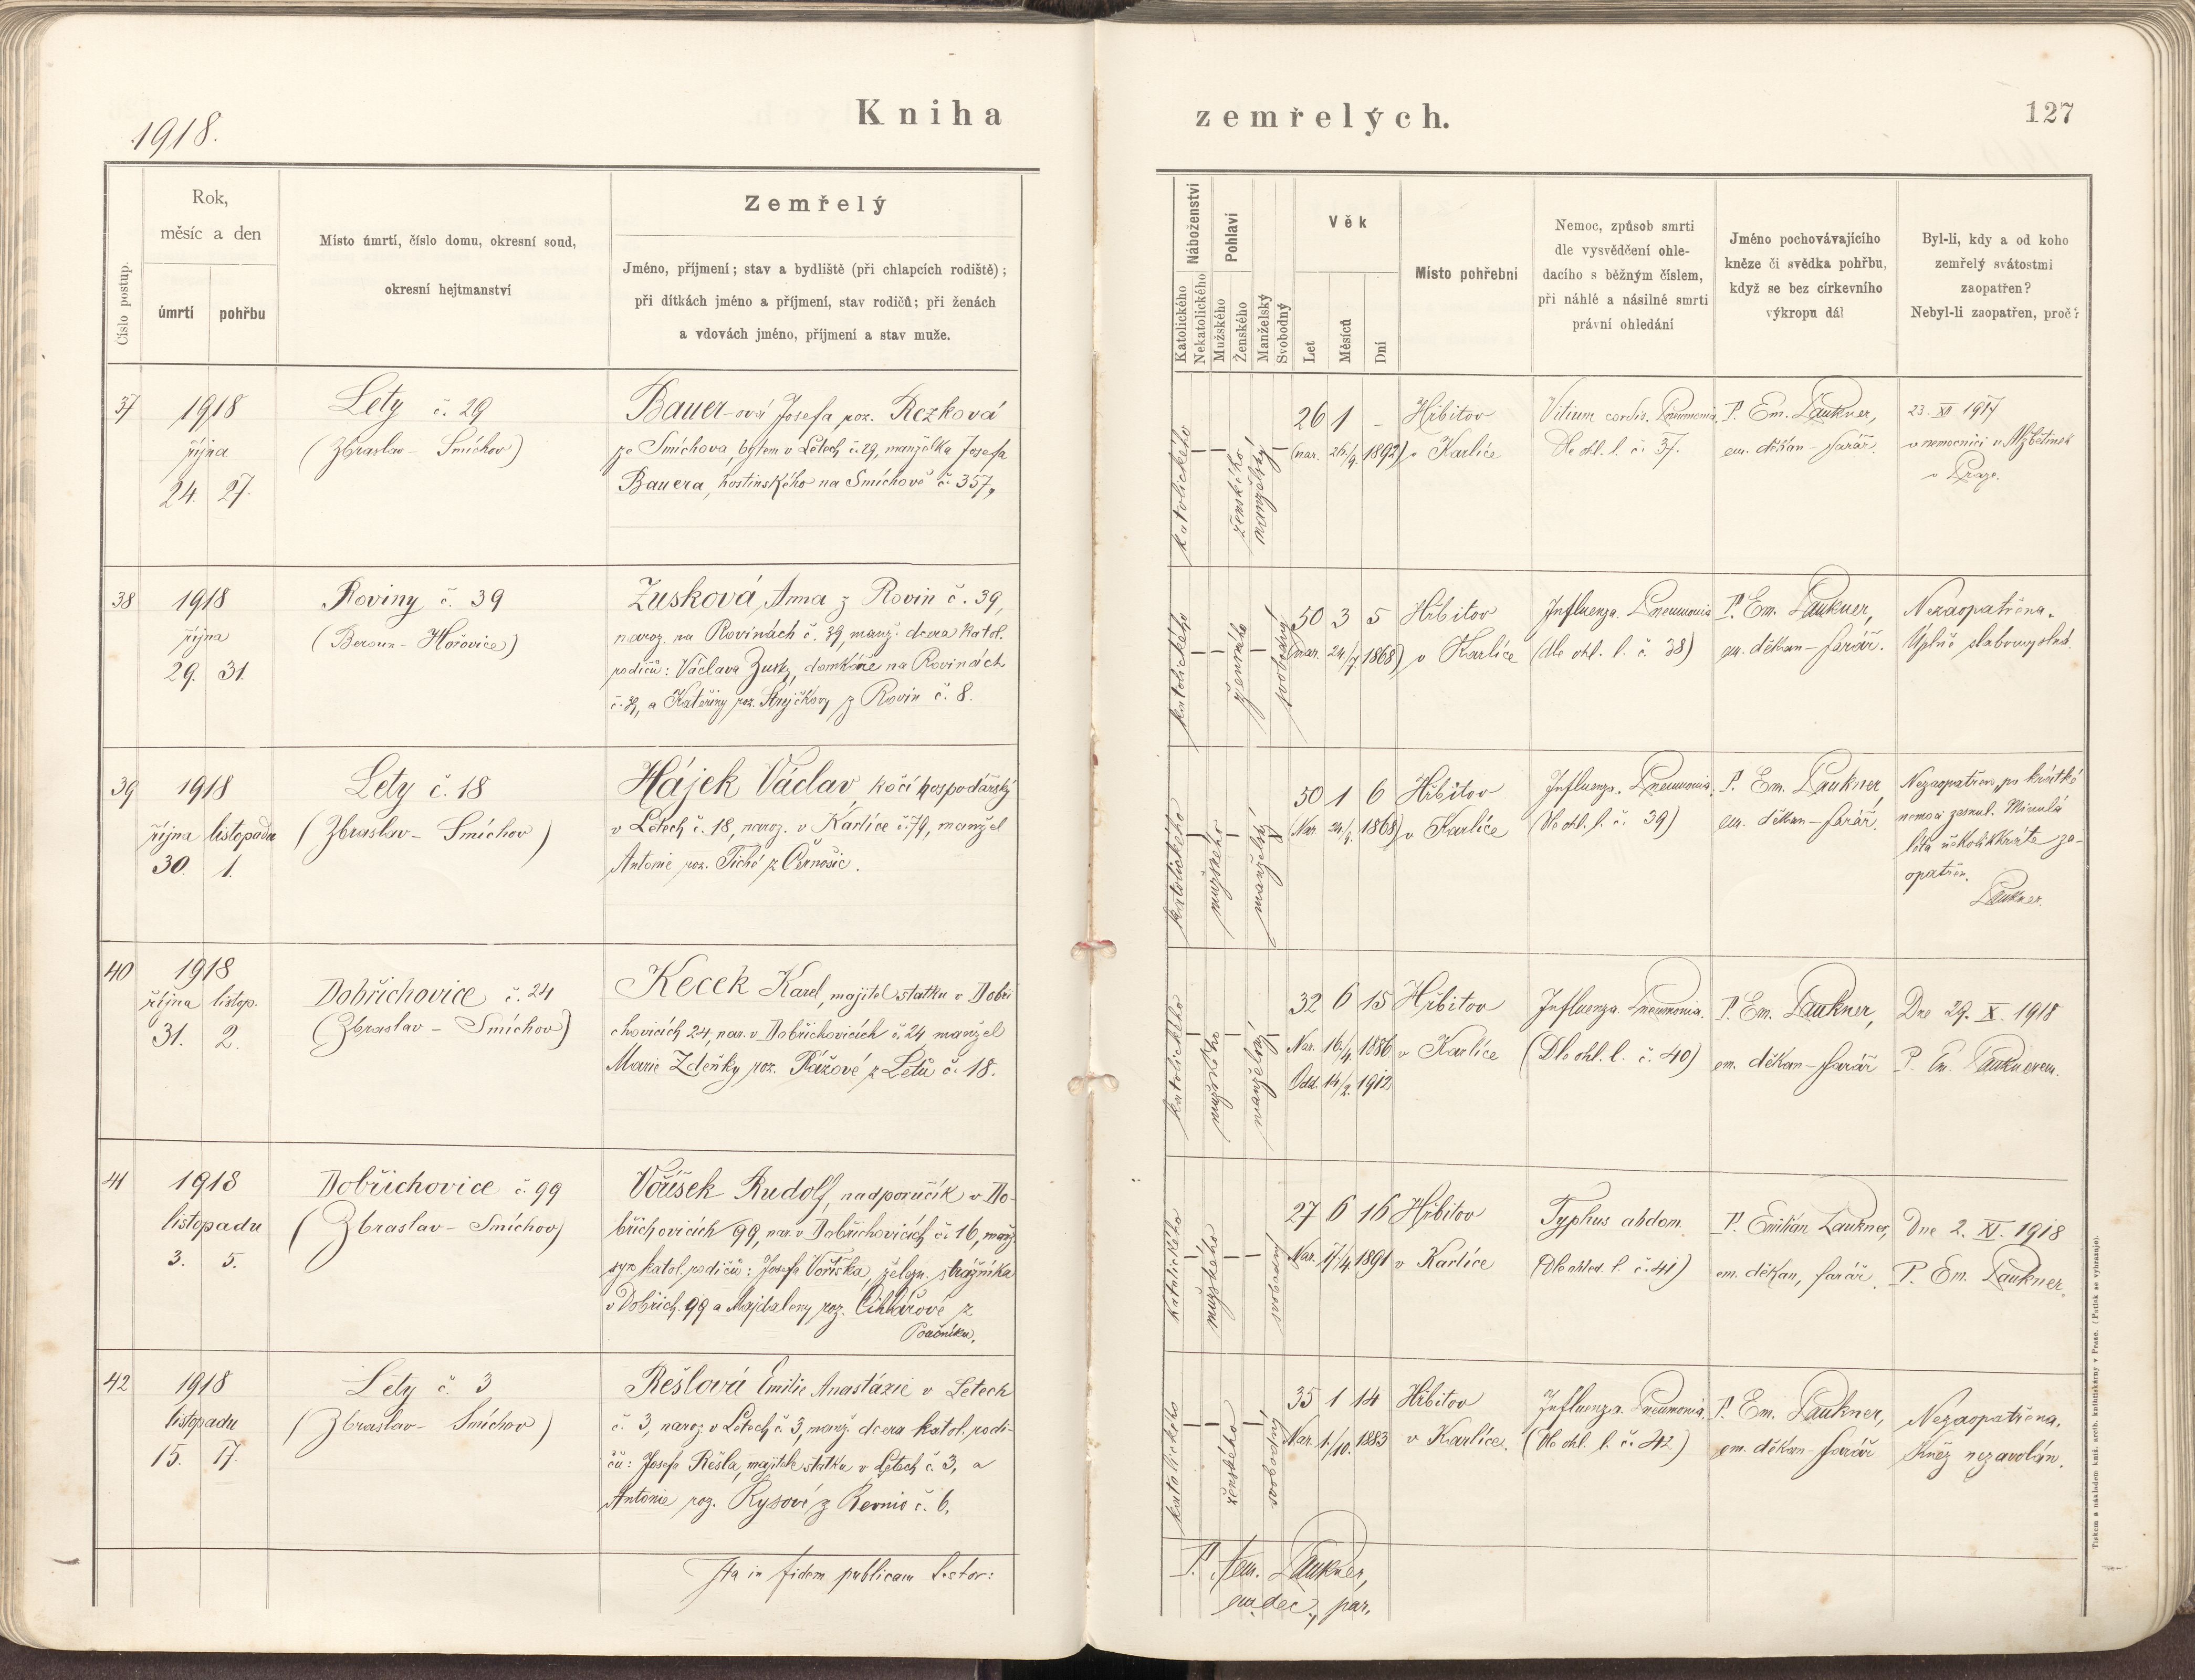 Kniha zemřelých.
127
1918.
Číslo postup.
Rok,
měsíc a den
úmrtí
pohřbu
Místo úmrtí, číslo domu, okresní soud,
okresní hejtmanství
Zemřelý
Jméno, příjmení; stav a bydliště (při chlapcích rodiště);
při dítkách jméno a příjmení, stav rodičů; při ženách
a vdovách jméno, příjmení a stav muže.
Náboženství
Katolického
Nekatolického
Pohlaví
Mužského
Ženského
Manželský
Svobodný
Věk
Let
Měsíců
Dní
Místo pohřební
Nemoc, způsob smrti
dle vysvědčení ohle-
dacího s běžným číslem,
při náhlé a násilné smrti
právní ohledání
Jméno pochovávajícího
kněze či svědka pohřbu,
když se bez církevního
výkropu dál
Byl-li, kdy a od koho
zemřelý svátostmi
zaopatřen?
Nebyl-li zaopatřen, proč?
37
1918
října
24. 27.
Lety č. 29
(Zbraslav - Smíchov)
Bauer-ová Josefa roz. Rezková
ze Smíchova, bytem v Letech č. 29, manželka Josefa
Bauera, hostinského na Smíchově č. 357,
katolického
ženského
manželský
26 1 -
(nar. 26./9. 1892)
Hřbitov
v Karlíce
Vitium cordis. Pneumonia.
Dle ohl. l. č. 37.
P. Em. Paukner,
em. děkan - farář.
23. XII 1917
v nemocnici u Alžbětinek
v Praze.
38
1918
října
29. 31.
Roviny č. 39
(Beroun - Hořovice)
Zusková Anna z Rovin č. 39,
naroz. na Rovinách č. 39 manž. dcera katol.
rodičů: Václava Zusky, domkáře na Rovinách
a Kateřiny roz. Strýčkovy z Rovin č. 8.
katolického
ženského
svobodný
50 3 5
(nar. 24/7. 1868)
Hřbitov
v Karlíce
Influenza. Pneumonia
(dle ohl. l. č. 38)
P. Em. Paukner,
em. děkan - farář.
Nezaopatřena.
Úplně slabomyslná.
39
1918
října listopadu
30. 1.
Lety č. 18
(Zbraslav - Smíchov)
Hájek Václav kočí hospodářský
v Letech č. 18, naroz. v Karlíce č. 79, manžel
Antonie roz. Tiché z Černošic.
katolického
mužského
manželský
50 1 6
(Nar. 24/9. 1868)
Hřbitov
v Karlíce
Influenza. Pneumonia.
(Dle ohl. l. č. 39)
P. Em. Paukner,
em. děkan - farář.
Nezaopatřen, po krátké
nemoci zesnul. Minulá
léta několikkráte za-
opatřen.
Paukner.
40
1918
října listop.
31. 2.
Dobřichovice č. 24
(Zbraslav - Smíchov)
Kecek Karel, majitel statku v Dobři
chovicích 24, nar. v Dobřichovicích č. 24 manžel
Marie Zdeňky roz. Rážové z Letů č. 18.
katolického
mužského
manželský
32 6 15
Nar. 16./4. 1886
Odd. 14/2. 1912
Hřbitov
v Karlíce
Influenza. Pneumonia.
(Dle ohl. l. č. 40)
P. Em. Paukner,
em. děkan - farář
Dne 29. X. 1918
P. Em. Pauknerem.
41
1918
listopadu
3. 5.
Dobřichovice č. 99
(Zbraslav - Smíchov)
Voříšek Rudolf, nadporučík v Do-
břichovicích 99, nar. v Dobřichovicích č. 16, manž.
syn katol. rodičů: Josefa Voříška železn. strážníka
v Dobřich. 99 a Majdaleny roz. Cihlářové z
katolického
mužského
svobodný
27 6 16
Nar. 17./4. 1891
Hřbitov
v Karlíce
Typhus abdom.
(Dle ohled. l. č. 41)
P. Emilián Paukner,
em. děkan, farář.
Dne 2. XI. 1918
P. Em. Paukner.
42
1918
listopadu
15. 17.
Lety č. 3
(Zbraslav - Smíchov)
Rešlová Emilie Anastázie v Letech
č. 3, naroz. v Letech č. 3, manž. dcera katol. rodi-
čů: Josefa Rešla, majitele statku v Letech č. 3, a
Antonie roz. Rysové z Řevnic č. 6.
katolického
ženského
svobodný
35 1 14
Nar. 1./10. 1883
Hřbitov
v Karlíce.
Influenza. Pneumonia.
(Dle ohl. l. č. 42)
P. Em. Paukner,
em. děkan - farář
Nezaopatřena.
Kněz nezavolán.
Ita in fidem publicam testor:
P. Aem. Paukner,
em. dec., par.
Tiskem a nákladem kníž. arcib. knihtiskárny v Praze. (Patisk se vyhrazuje).